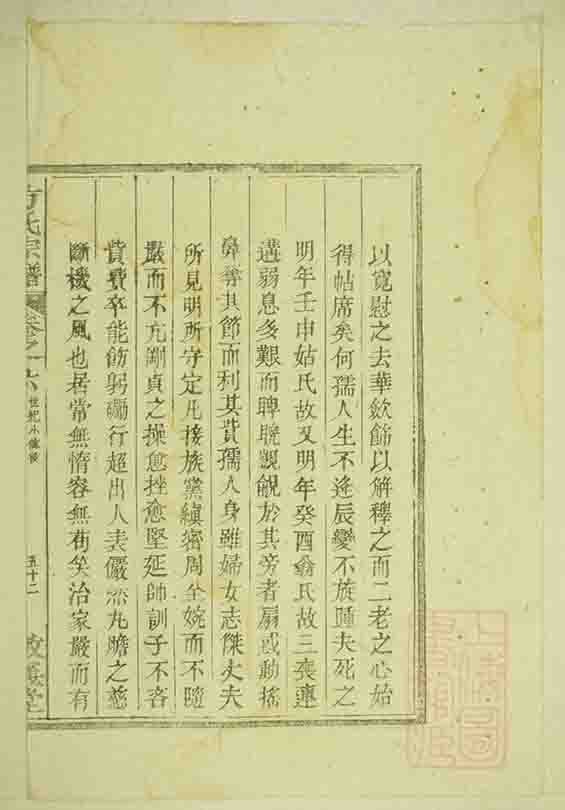 以寬慰之去華斂飾以解釋之而二老之心始
得帖席矣何孺人生不逢辰變不旋踵夫死之
明年壬申姑氏故又明年癸酉翁氏故三喪連
遘弱息多艱而睥睨覬覦於其旁者扇或動搖
冀奪其節而利其貲孺人身雖婦女志傑丈夫
所見明所守定凡接族黨縝密周全婉而不隨
嚴而不亢剛貞之操愈挫愈堅延師訓子不吝
貲費卒能飭躬礪行超出人表儼然丸膽之慈
斷機之風也居常無惰容無苟笑治家嚴而有
方氏宗譜 卷之十六 世紀小傳 五十二 敦義堂